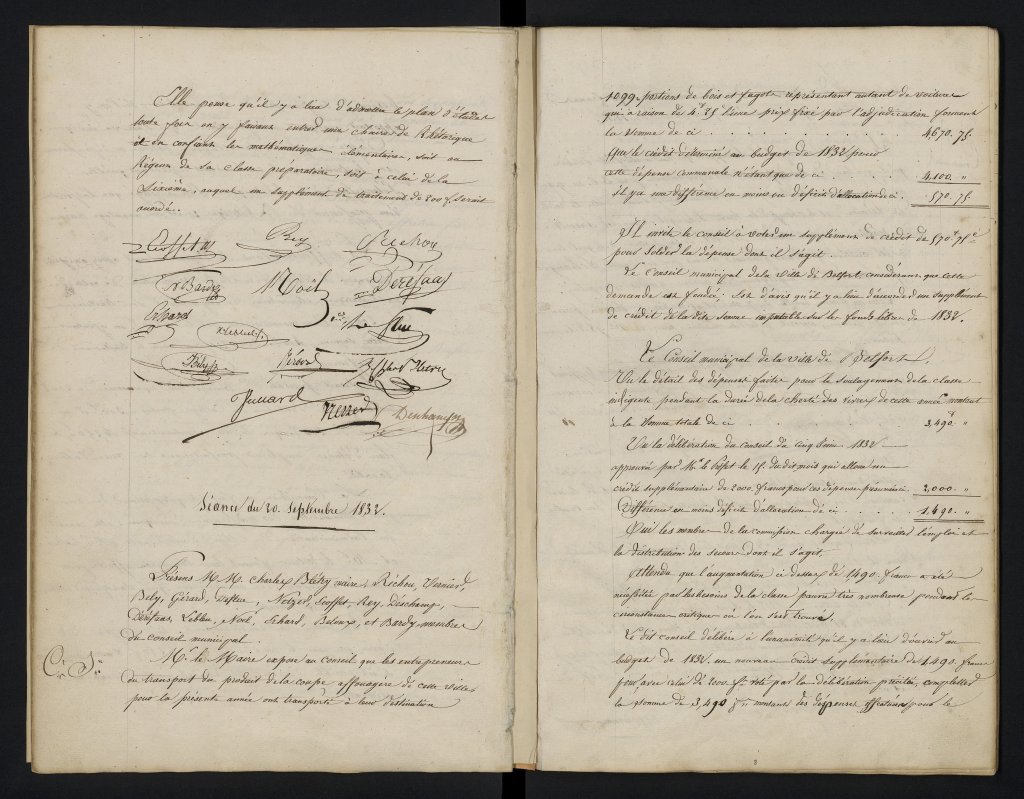 Elle pense qu'il y a lieu d'adopter le plan d'études
toute fois en y faisant entrer une chaire de Rhétorique
et en confiant les mathématiques élémentaires, soit au
Régent de sa classe préparatoire, soit à celui de la
Sixième, auquel un supplément de traitement de 200 f. serait
accordé.
Rey Richou
Bardy Noël Deréfaas
Béloux
Gérard
Netzer Deschamps
Séance du 20. Septembre 1832.
Présens M. M. Charles Blétry maire, Richou, Vernier,
Bély, Gérard, Netzer, Rey, Deschamp,
Deréfaas, Lebleu, Noël, Béloux, et Bardy membres
du conseil municipal.
Mr. le Maire expose au conseil que les entrepreneurs
du transport du produit de la coupe affouagère de cette ville,
pour la présente année ont transporté à leur destination
1099. portions de bois et fagots représentant autant de voitures
qui à raison de 4f 25 l'une prix fixé par l'adjudication forment
la somme de ci . . . . . . 4,670. 75.
Que le crédit déterminé au budget de 1832 pour
cette dépense communale n'étant que de ci . . . . 4,100. "
il y a une différence en moins ou déficit d'allocation de ci . 570. 75.
Il invite le conseil à voter un supplément de crédit de 570f 75c
pour solder la dépense dont il s'agit.
Le Conseil municipal de la ville de Belfort, considérant que cette
demande est fondée; Est d'avis qu'il y a lieu d'accorder un supplément
de crédit de la dite somme imputable sur les fonds libres de 1832.
Le Conseil municipal de la ville de Belfort,
Vu le détail des dépenses faites pour le soulagement de la classe
indigente pendant la durée de la cherté des vivres de cette année montant
à la somme totale de ci . . . . . 3,490. "
Vu la délibération du conseil du cinq Juin 1832
approuvée par Mr. le Préfet le 15. du dit mois qui alloue un
crédit supplémentaire de 2000. francs pour ces dépenses présumées. 2,000. "
Différence en moins déficit d'allocation de ci . . . . 1,490. "
Ouï les membres de la commission chargée de surveiller l'emploi et
la distribution des secours dont il s'agit.
Attendu que l'augmentation ci dessus de 1490. francs a été
nécessitée par les besoins de la classe pauvre très nombreuse pendant la
circonstance critique où l'on s'est trouvé.
Le dit conseil délibère à l'unanimité qu'il y a lieu d'ouvrir au
budget de 1832. un nouveau crédit supplémentaire de 1,490 francs
pour avec celui de 2000. fr. voté par la délibération précitée, compléter
la somme de 3,490 f. montant des dépenses effectuées pour le